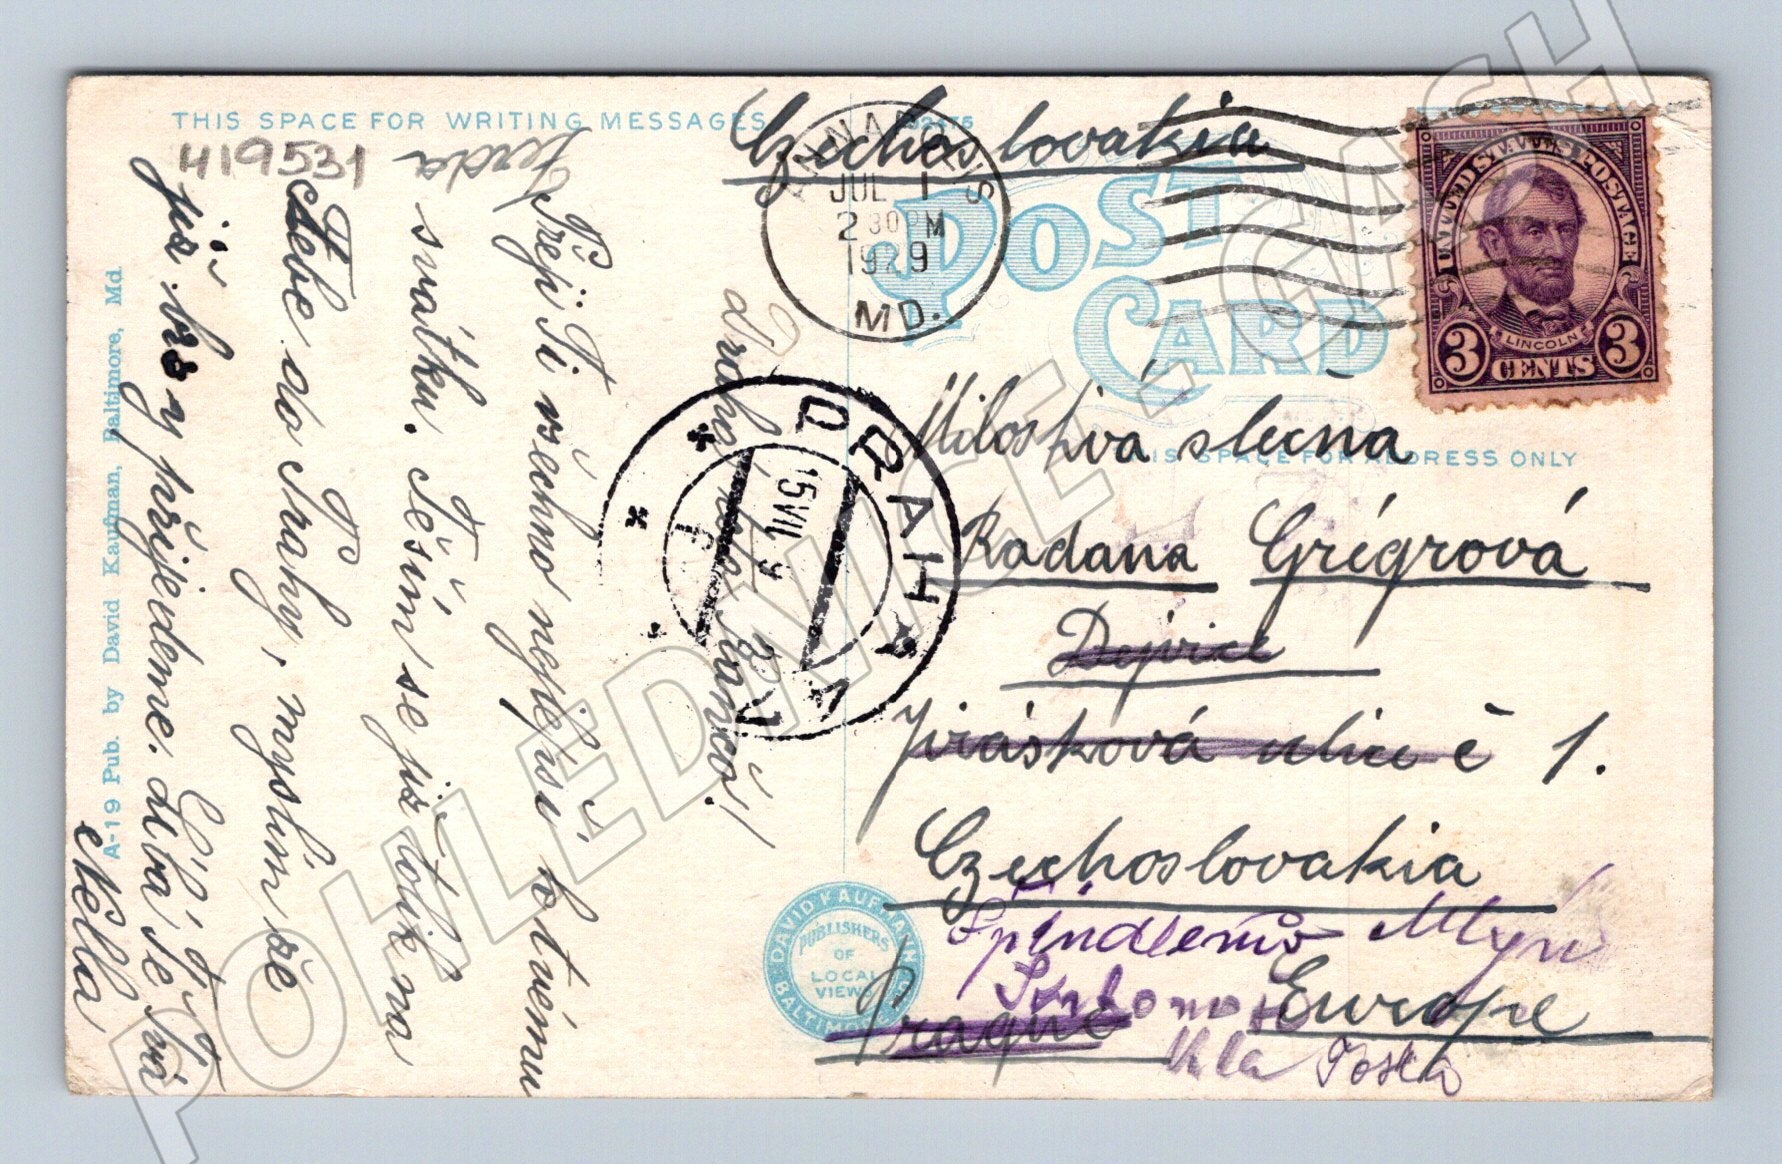 THIS SPACE FOR WRITING MESSAGES
419531
Drahoušku
Přeji Ti všechno nejlepší k tvému
svátku. Těším se již tolik na
Tebe do Prahy, myslím že
již brzy přijedeme. Líbá Tě Tvá
Nella
A-19 Pub. by David Kaufman, Baltimore, Md.
Czechoslovakia
ANNAPOLIS
JUL 1
2 30 PM
1929
MD.
92476
POST CARD
UNITED STATES POSTAGE
LINCOLN
3 CENTS 3
THIS SPACE FOR ADDRESS ONLY
PRAHA
15 VII
Milostivá slečna
Radana Grégrová
Dejvice
Jirásková ulice č 1.
Czechoslovakia
Špindlerův Mlýn
Europe
Prague
DAVID KAUFMANN
BALTIMORE
PUBLISHERS
OF
LOCAL
VIEWS
POHLEDNICE.CASH